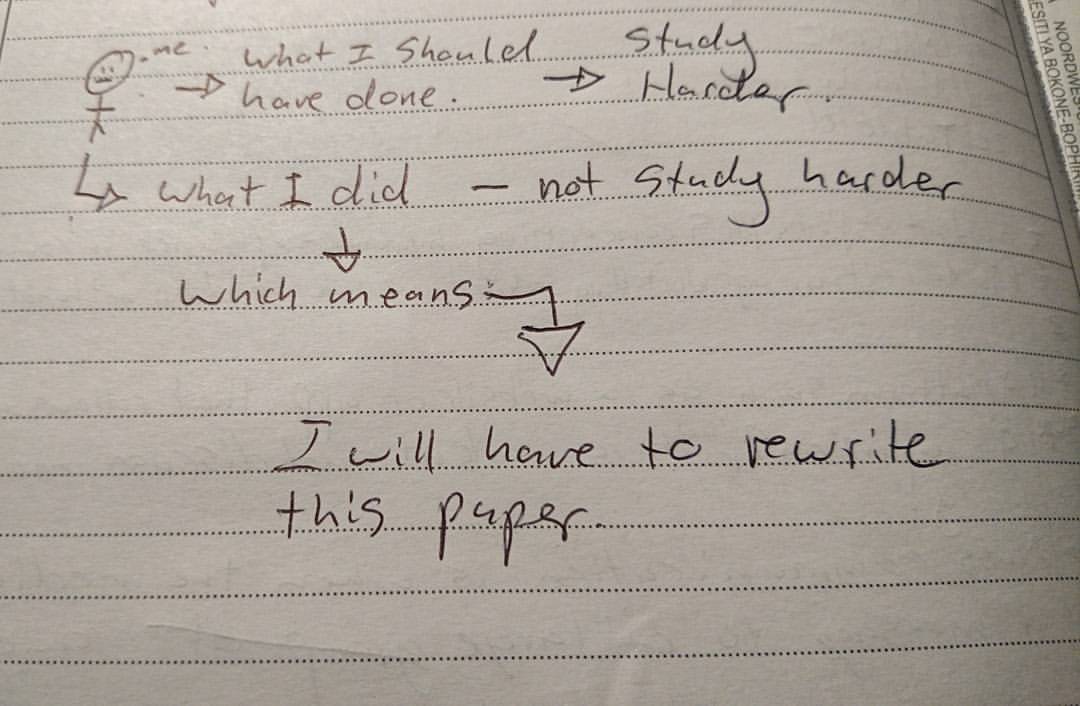 me.
What I Should
have done.
Study
Harder.
What I did – not Study harder
Which means:
I will have to rewrite
this paper.
NOORDWES
ESITI YA BOKONE-BOPHIRIMA